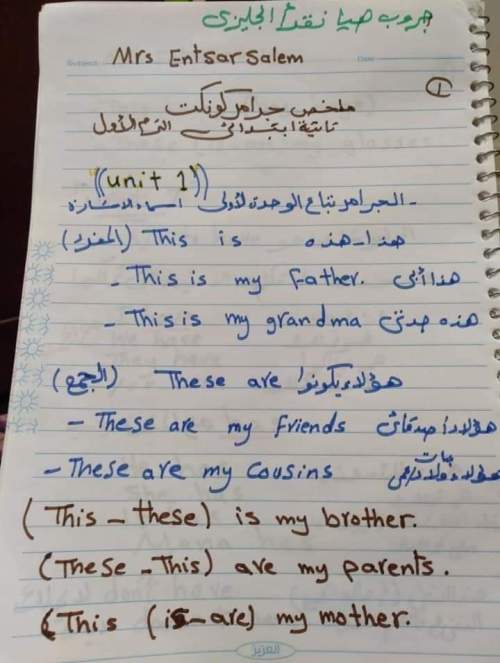 جروب هيا نقدأ انجليزى
Subject: Mrs Entsar Salem Date:
①
ملخص جرامر كونكت
تانية ابتدائى الترم الأول
((unit 1))
- الجرامر بتاع الوحدة الأولى أسماء الاشارة
(المفرد) This is هذا - هذه
- This is my father. هذا أبى
- This is my grandma هذه جدتى
(الجمع) These are هؤلاء يكونوا
- These are my friends هؤلاء أصدقائى
- These are my cousins هؤلاء
(This - these) is my brother.
(These - This) are my parents.
(This (is - are) my mother.
العزيز